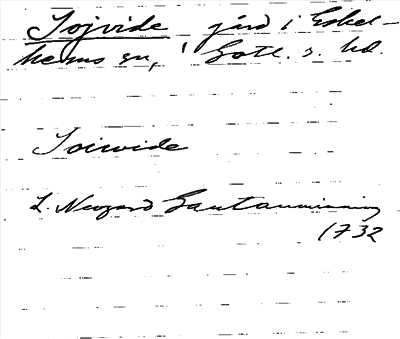 Sojvide gård i Eskel-
hems sn, Gotl. s. hd.
Soivide
L. Neogard Gautauminning
1732